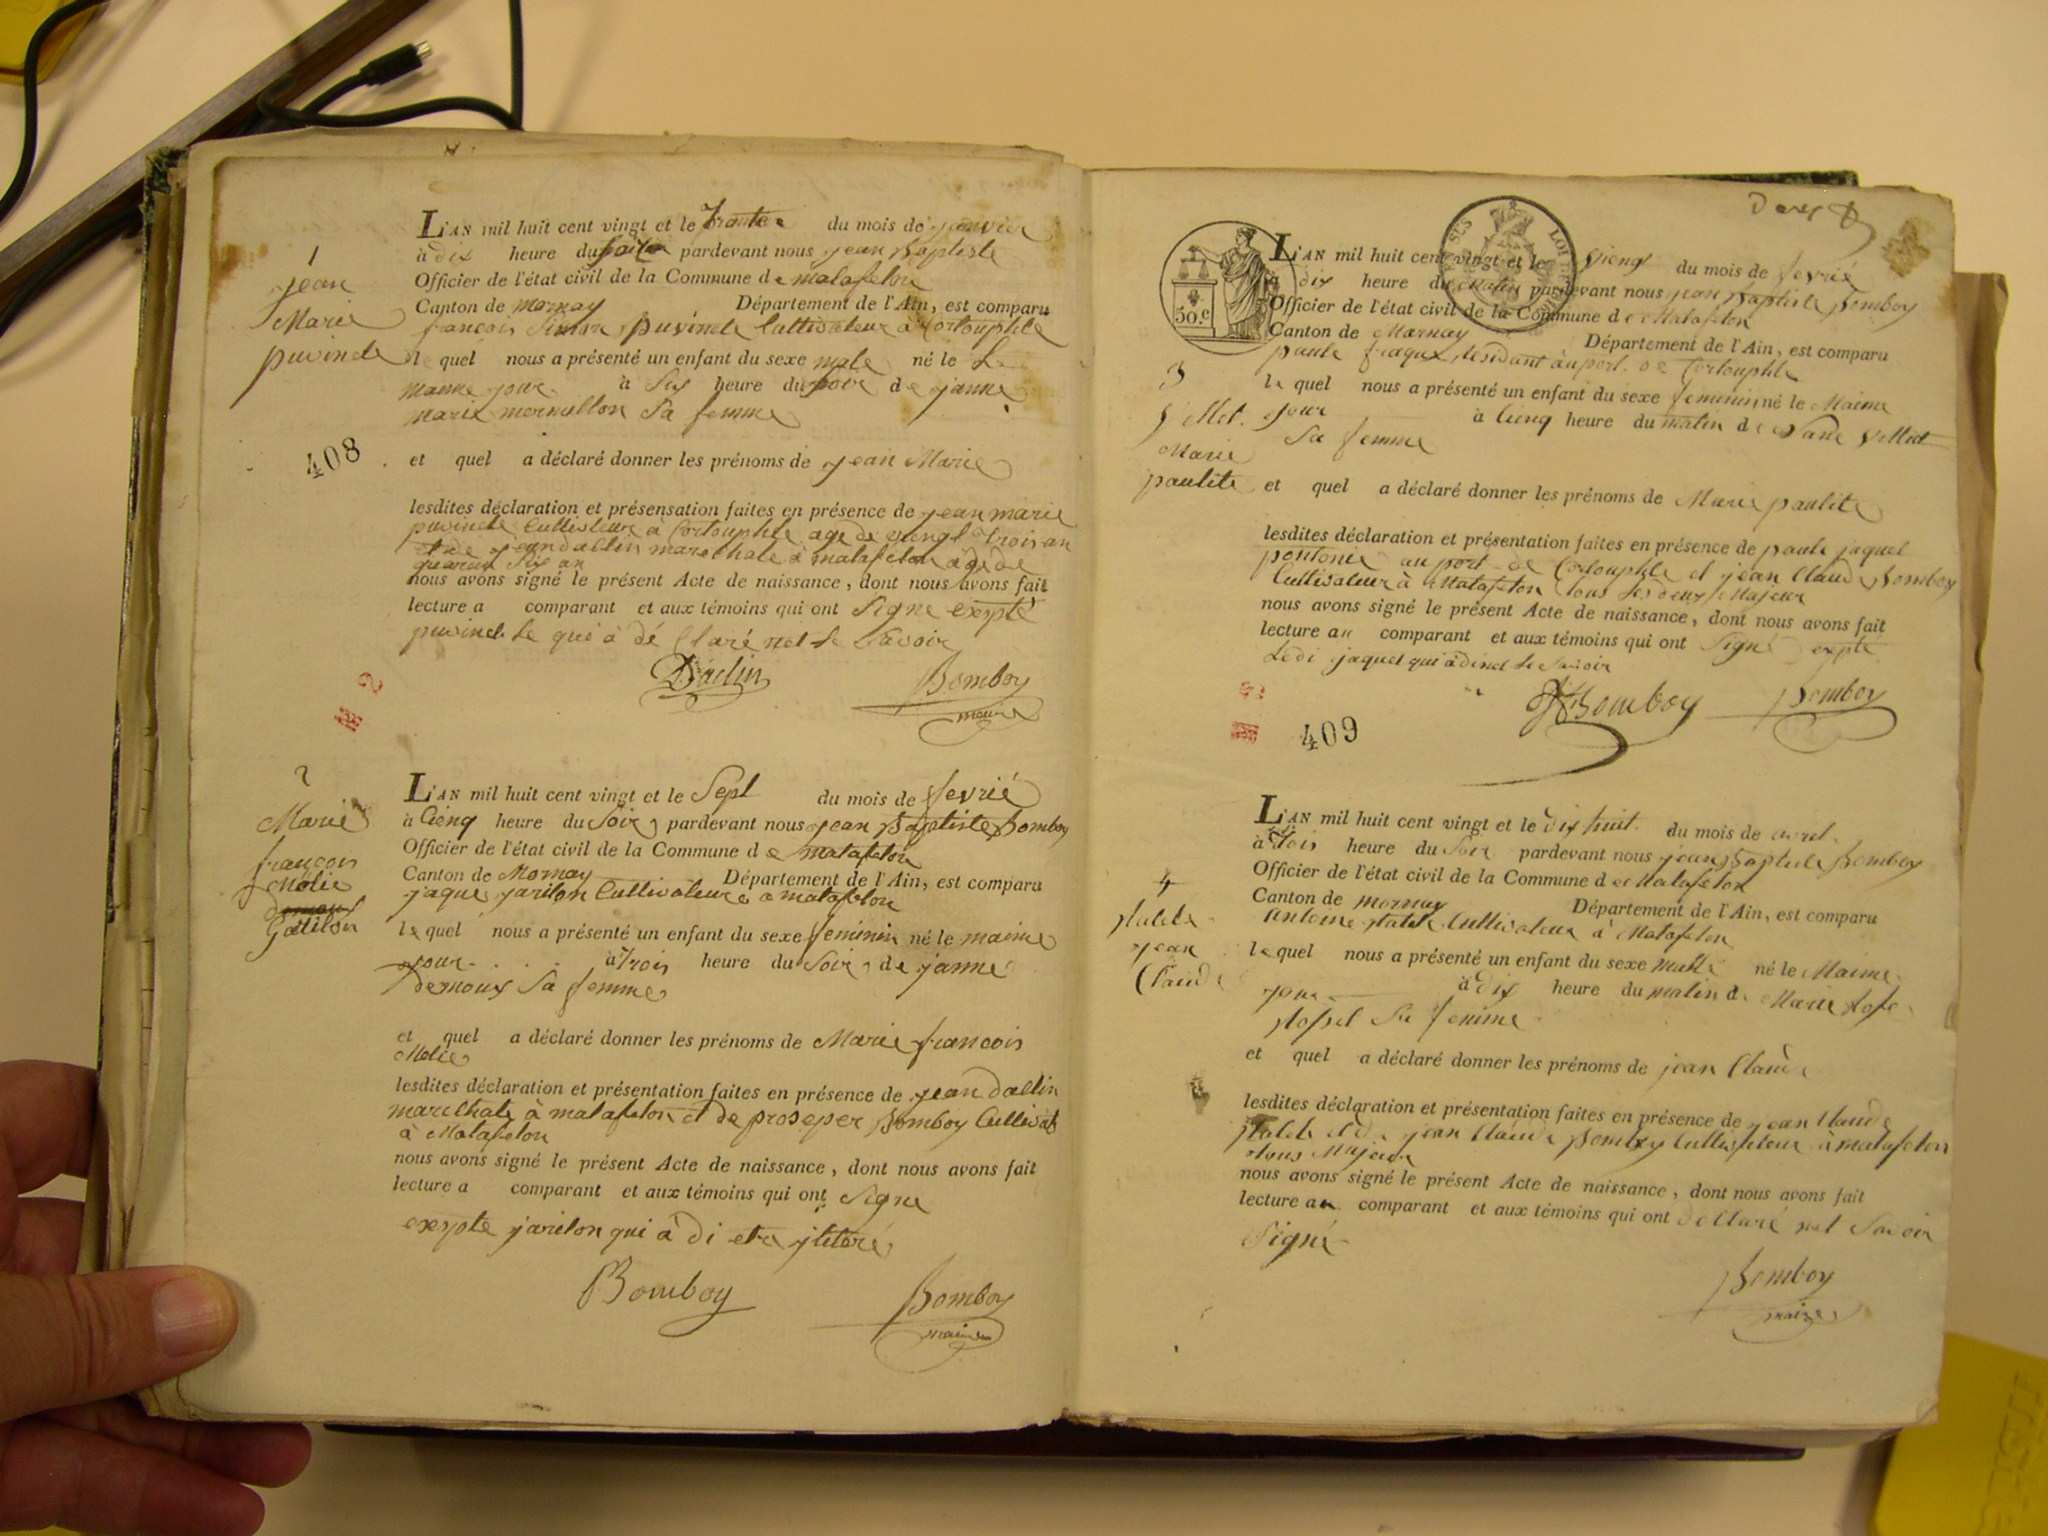 1
jean
Marie
puvinel
L'AN mil huit cent vingt et le Trante du mois de janvier
à dix heure du pardevant nous jean Baptiste
Officier de l'état civil de la Commune de matafelon
Canton de mornay Département de l'Ain, est comparu
francois puvinel Cultivateur à Cortouphle
le quel nous a présenté un enfant du sexe male né le Le
maime jour à Six heure du soir de janne
marie mornullon Sa femme
408
et quel a déclaré donner les prénoms de jean Marie
lesdites déclaration et présensation faites en présence de jean marie
puvinel Cultivateur à Cortouphle age de vengt trois an
et de jean daclin marechale à matafelon agé de
quarant Six an
nous avons signé le présent Acte de naissance, dont nous avons fait
lecture a comparant et aux témoins qui ont Signe exepté
puvinel le qui à dé Claré net le Savoir
Daclin Bomboy
maire
2
2
Marie
françois
Melie
Gatilon
L'AN mil huit cent vingt et le Sept du mois de fevrié
à Cienq heure du Soir pardevant nous jean Baptiste Bomboy
Officier de l'état civil de la Commune de matafelon
Canton de Mornay Département de l'Ain, est comparu
jaque jarilon Cultivateur a matafelon
le quel nous a présenté un enfant du sexe feminin né le maime
jour à trois heure du Soir de janne
Demoux Sa femme
et quel a déclaré donner les prénoms de Marie francois
Melie
lesdites déclaration et présentation faites en présence de jean daclin
marechale à matafelon et de prosper Bomboy Cultivat
à Matafelon
nous avons signé le présent Acte de naissance, dont nous avons fait
lecture a comparant et aux témoins qui ont Signe
exepte jarilon qui à di etre
Bomboy Bomboy
maire
30.c
L'AN mil huit cent vingt et le Vieng du mois de fevrié
à dix heure du Matin pardevant nous jean Baptiste Bomboy
Officier de l'état civil de la Commune de Matafelon
Canton de Mornay Département de l'Ain, est comparu
paule jaquet residant au port de Cortouphle
le quel nous a présenté un enfant du sexe feminin né le Maime
jour à Cienq heure du matin de
Sa femme
3
Marie
paulite
et quel a déclaré donner les prénoms de Marie paulite
lesdites déclaration et présentation faites en présence de paule jaquet
pontonié au port de Cortouphle et jean Claude Bomboy
Cultivateur à Matafelon tous les deux Majeur
nous avons signé le présent Acte de naissance, dont nous avons fait
lecture au comparant et aux témoins qui ont Signé exepté
Ledi jaquet qui à di net le Savoir
Bomboy Bomboy
409
L'AN mil huit cent vingt et le dix huit du mois de avril
à Trois heure du Soir pardevant nous jean Baptiste Bomboy
Officier de l'état civil de la Commune de Matafelon
Canton de mornay Département de l'Ain, est comparu
antoine Cultivateur à Matafelon
4
jean
Claude
le quel nous a présenté un enfant du sexe malle né le Maime
jour à dix heure du matin de Marie
Sa femme
et quel a déclaré donner les prénoms de jean Claude
lesdites déclaration et présentation faites en présence de jean Claude
et de jean Claude Bomboy Cultivateur à matafelon
tous Majeur
nous avons signé le présent Acte de naissance, dont nous avons fait
lecture au comparant et aux témoins qui ont declaré net Savoir
Signé
Bomboy
maire